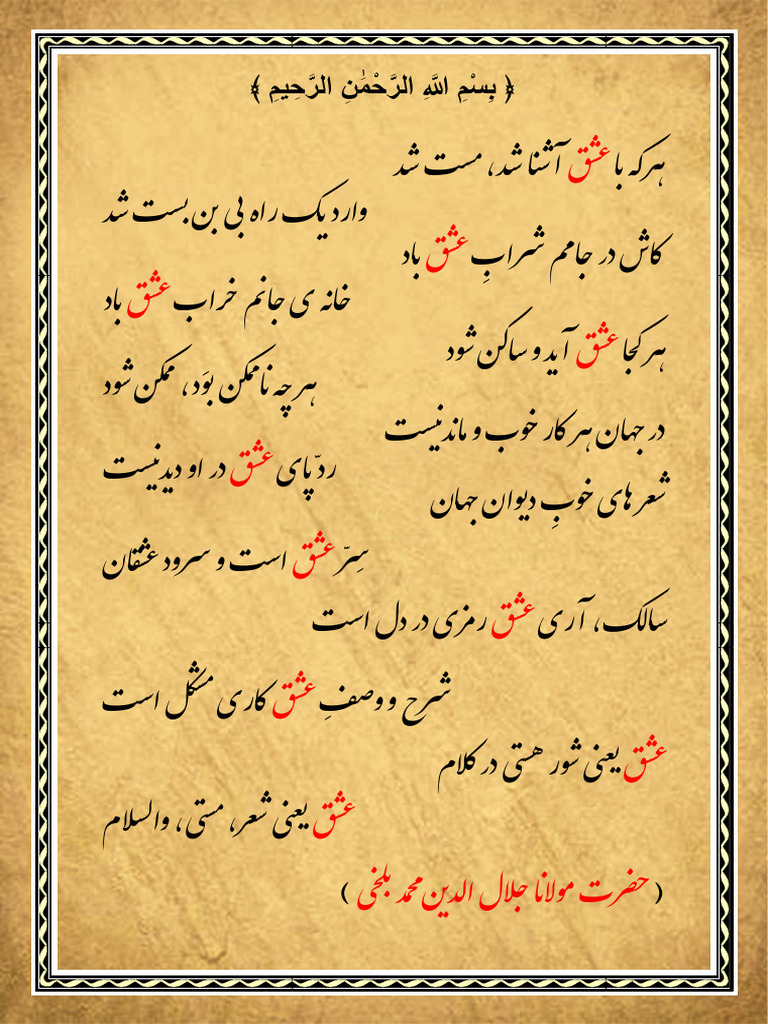 ﴿ بِسْمِ اللَّهِ الرَّحْمَٰنِ الرَّحِيمِ ﴾
هرکه با عشق آشنا شد، مست شد
وارد یک راه بی بن بست شد
کاش در جامم شرابِ عشق باد
خانه ی جانم خراب عشق باد
هرکجا عشق آید و ساکن شود
هرچه ناممکن بوَد، ممکن شود
در جهان هر کار خوب و ماندنیست
ردّ پای عشق در او دیدنیست
شعر های خوبِ دیوان جهان
سِرّ عشق است و سرود عشقان
سالک، آری عشق رمزی در دل است
شرح و وصفِ عشق کاری مشکل است
عشق یعنی شور هستی در کلام
عشق یعنی شعر، مستی، والسلام
( حضرت مولانا جلال الدین محمد بلخی )